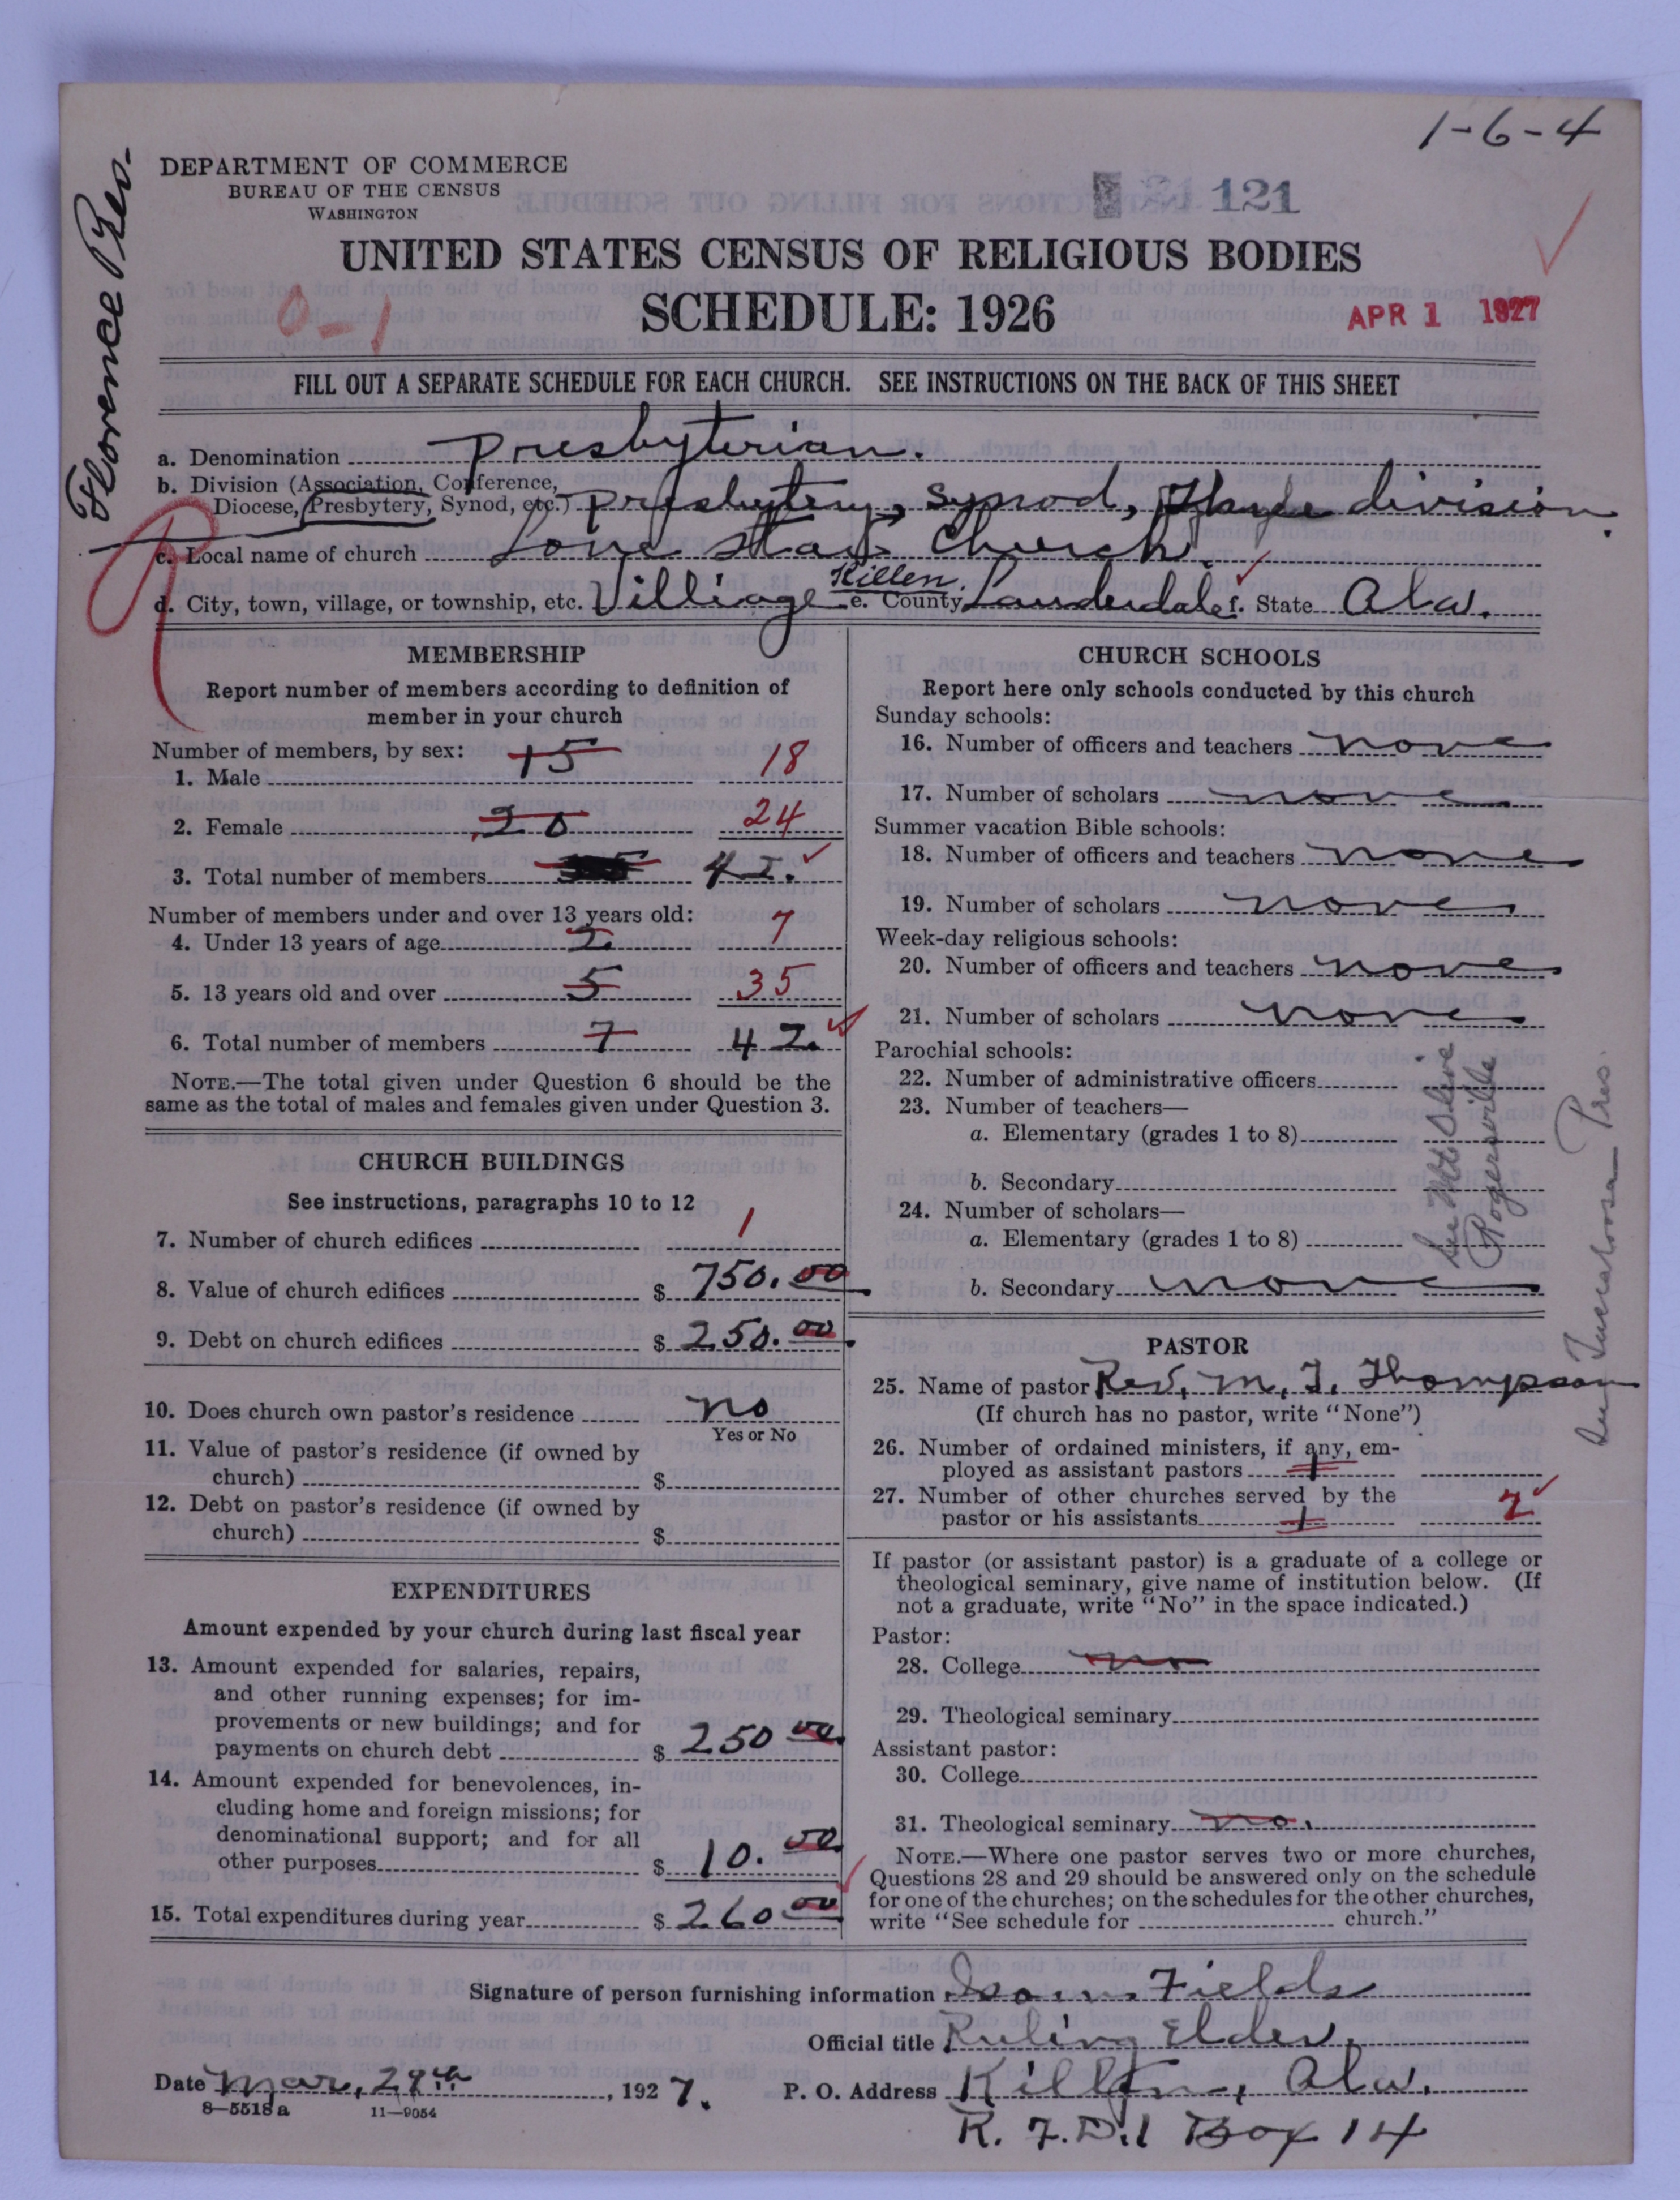 1-6-4
Florence Pres.
DEPARTMENT OF COMMERCE
BUREAU OF THE CENSUS
WASHINGTON
121
UNITED STATES CENSUS OF RELIGIOUS BODIES
0-1
SCHEDULE: 1926
APR 1 1927
FILL OUT A SEPARATE SCHEDULE FOR EACH CHURCH. SEE INSTRUCTIONS ON THE BACK OF THIS SHEET
a. Denomination Presbyterian.
b. Division (Association, Conference,
Diocese, Presbytery, Synod, etc.) Presbytery, Synod, division.
c. Local name of church Lone Star Church
d. City, town, village, or township, etc. Villiage Killen. e. County Lauderdale f. State Ala.
MEMBERSHIP
Report number of members according to definition of
member in your church
Number of members, by sex:
1. Male 15 18
2. Female 20 24
3. Total number of members 42.
Number of members under and over 13 years old:
4. Under 13 years of age 2 7
5. 13 years old and over 5 35
6. Total number of members 7 42.
NOTE.—The total given under Question 6 should be the
same as the total of males and females given under Question 3.
CHURCH BUILDINGS
See instructions, paragraphs 10 to 12
7. Number of church edifices 1
8. Value of church edifices $ 750.00
9. Debt on church edifices $ 250.00
10. Does church own pastor's residence no
Yes or No
11. Value of pastor's residence (if owned by
church) $
12. Debt on pastor's residence (if owned by
church) $
EXPENDITURES
Amount expended by your church during last fiscal year
13. Amount expended for salaries, repairs,
and other running expenses; for im-
provements or new buildings; and for
payments on church debt $ 250 00
14. Amount expended for benevolences, in-
cluding home and foreign missions; for
denominational support; and for all
other purposes $ 10. 00
15. Total expenditures during year $ 260 00
CHURCH SCHOOLS
Report here only schools conducted by this church
Sunday schools:
16. Number of officers and teachers none
17. Number of scholars none
Summer vacation Bible schools:
18. Number of officers and teachers none
19. Number of scholars none
Week-day religious schools:
20. Number of officers and teachers none
21. Number of scholars none
Parochial schools:
22. Number of administrative officers
23. Number of teachers—
a. Elementary (grades 1 to 8)
b. Secondary
24. Number of scholars—
a. Elementary (grades 1 to 8)
b. Secondary none
See Mt Olive
Rogersville
In Tuscaloosa Pres.
PASTOR
25. Name of pastor Rev. M. J. Thompson
(If church has no pastor, write "None")
26. Number of ordained ministers, if any, em-
ployed as assistant pastors 1
27. Number of other churches served by the
pastor or his assistants 1 2
If pastor (or assistant pastor) is a graduate of a college or
theological seminary, give name of institution below. (If
not a graduate, write "No" in the space indicated.)
Pastor:
28. College no
29. Theological seminary
Assistant pastor:
30. College
31. Theological seminary no.
NOTE.—Where one pastor serves two or more churches,
Questions 28 and 29 should be answered only on the schedule
for one of the churches; on the schedules for the other churches,
write "See schedule for church."
Signature of person furnishing information Isom Fields
Official title Ruling Elder.
Date Mar, 29th, 1927.
P. O. Address Killen, Ala.
R. F. D. 1 Box 14
8-5518 a
11-9054